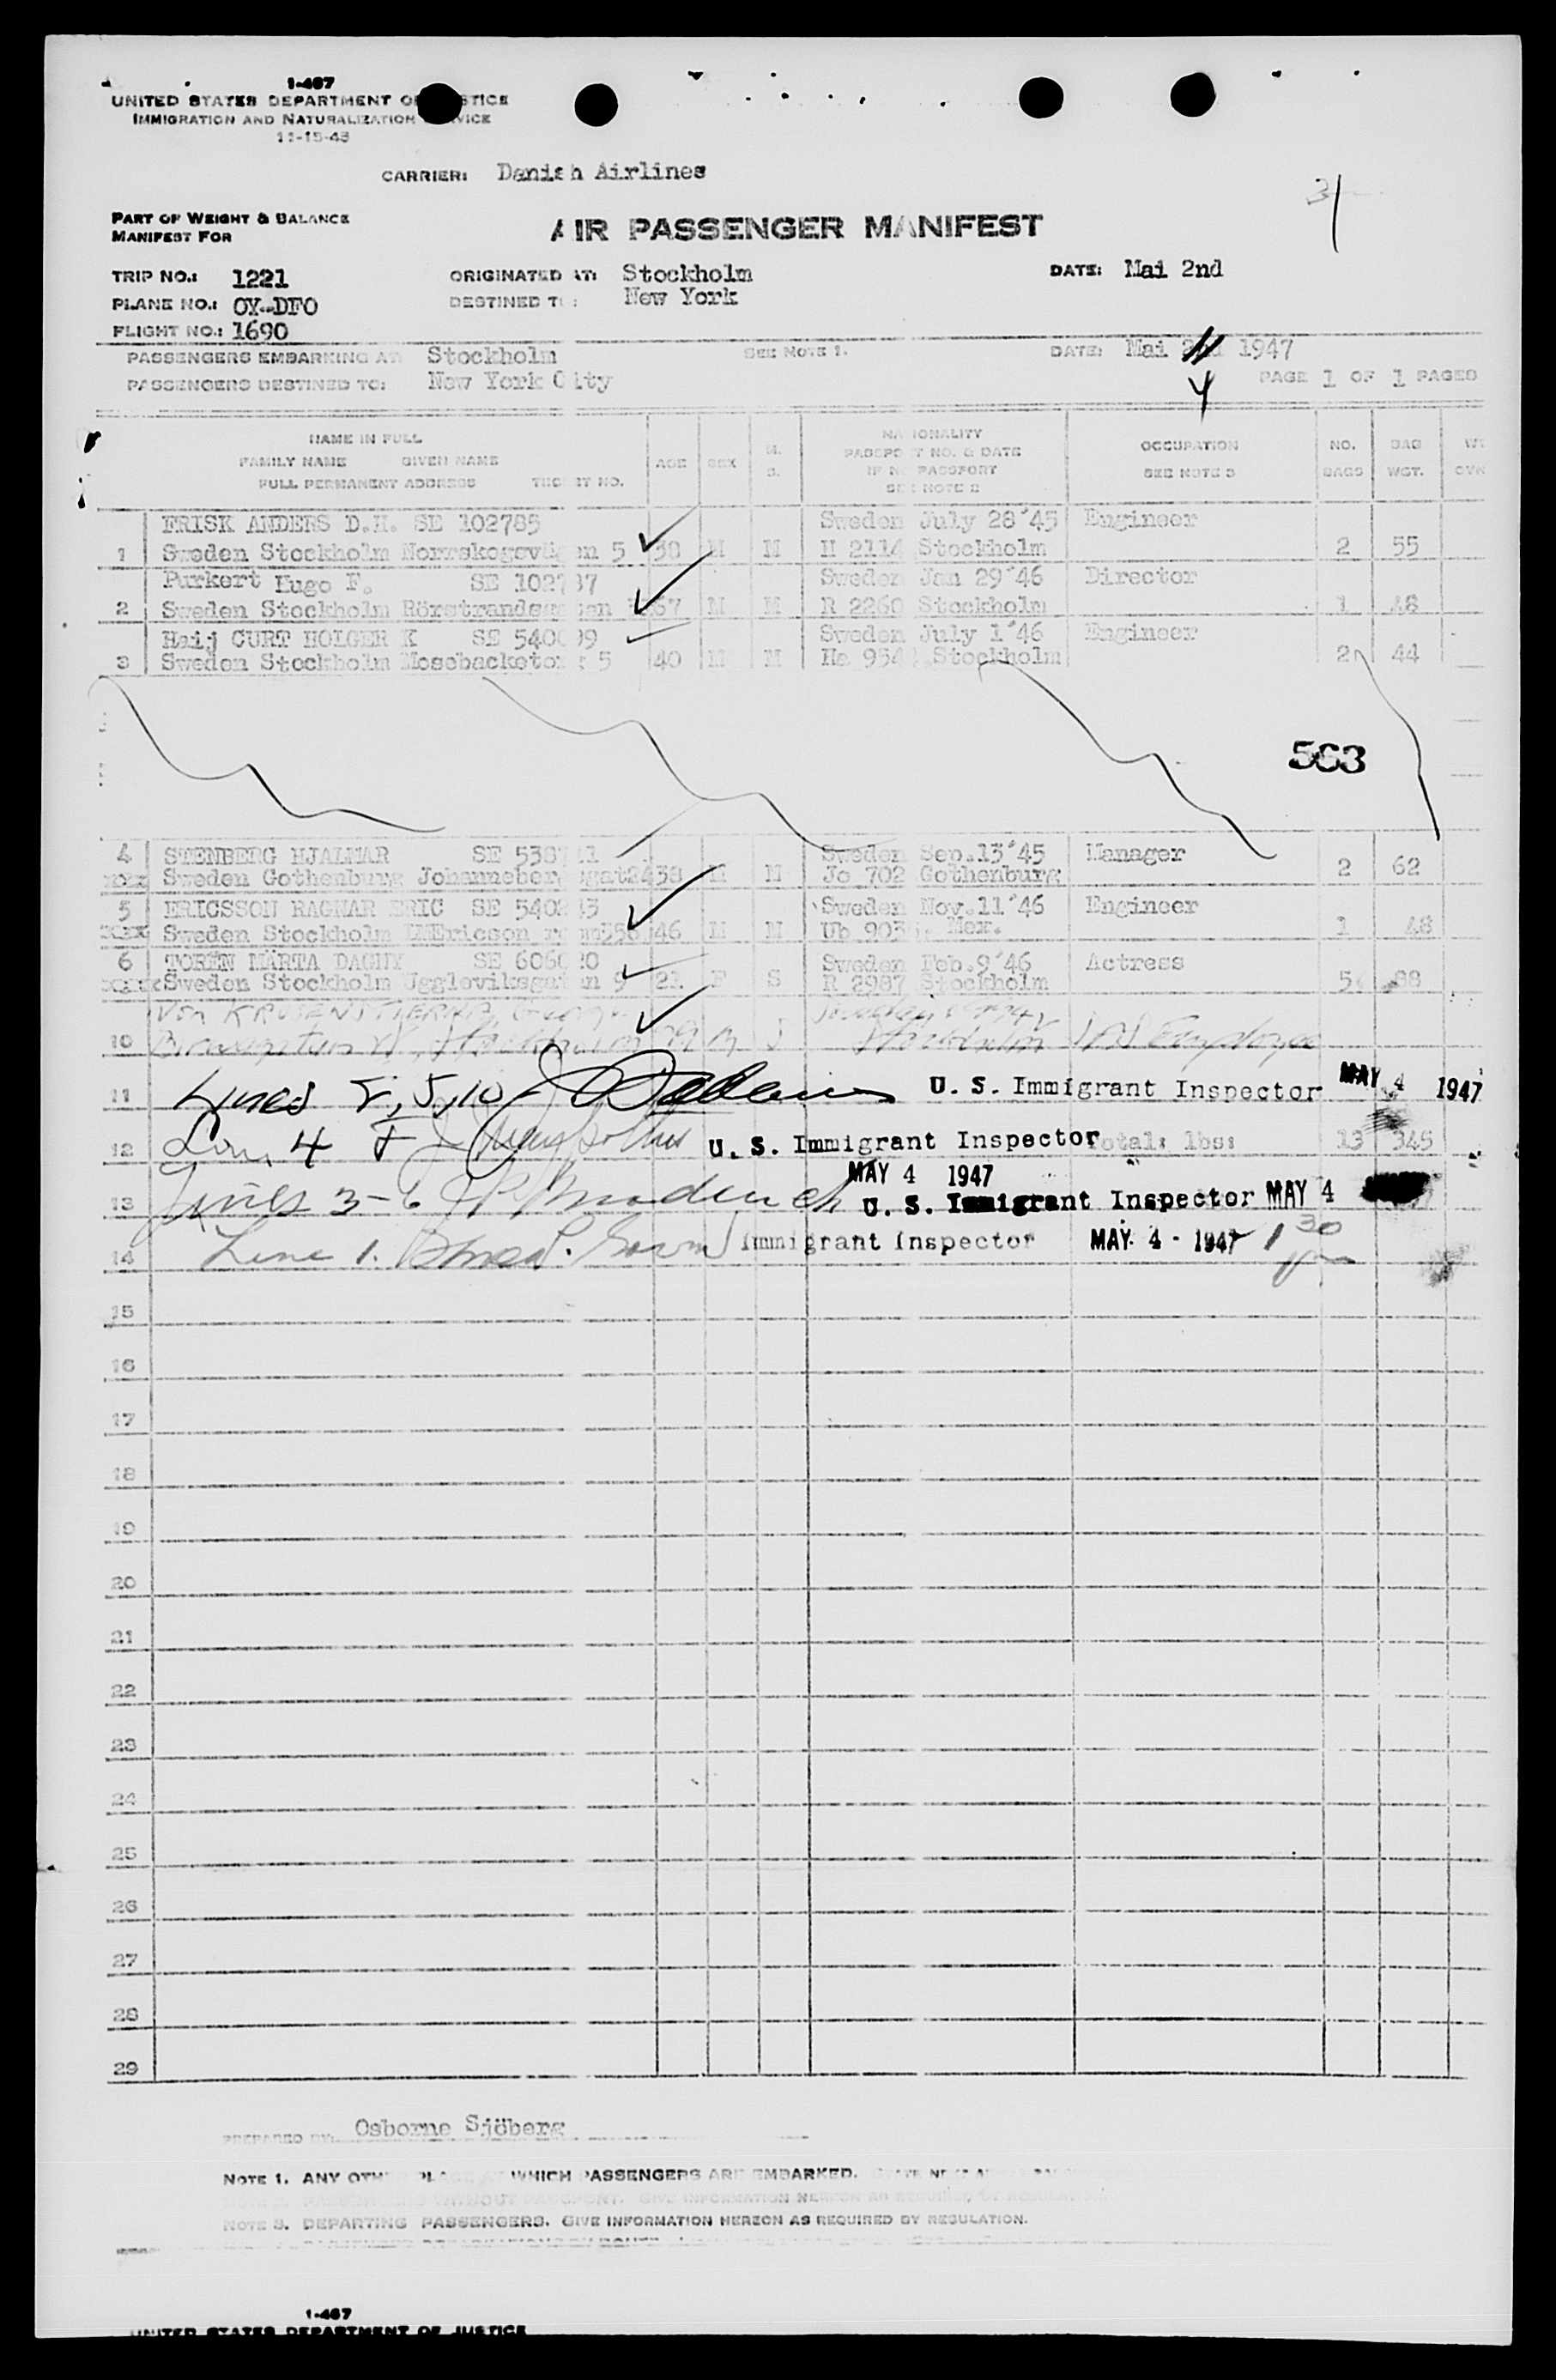 1-467
UNITED STATES DEPARTMENT OF JUSTICE
IMMIGRATION AND NATURALIZATION SERVICE
11-15-45
CARRIER: Danish Airlines
PART OF WEIGHT & BALANCE
MANIFEST FOR
AIR PASSENGER MANIFEST
TRIP NO.: 1221 ORIGINATED AT: Stockholm DATE: Mai 2nd
PLANE NO.: OY-DFO DESTINED TO: New York
FLIGHT NO.: 1690
PASSENGERS EMBARKING AT Stockholm SEE NOTE 1. DATE: Mai 2nd 1947
PASSENGERS DESTINED TO: New York City 4 PAGE 1 OF 1 PAGES
NAME IN FULL
FAMILY NAME GIVEN NAME
FULL PERMANENT ADDRESS TICKET NO. AGE SEX M. S. NATIONALITY PASSPORT NO. & DATE IF NO PASSPORT SEE NOTE 2 OCCUPATION SEE NOTE 3 NO. BAGS BAG WGT.
FRISK ANDERS D.H. SE 102785 Sweden July 28'45 Engineer
1 Sweden Stockholm Norrskogsvägen 5 38 M M N 2114 Stockholm 2 55
Purkert Hugo F. SE 102787 Sweden Jan 29'46 Director
2 Sweden Stockholm Rörstrandsgatan 57 M M R 2260 Stockholm 1 48
Haij CURT HOLGER K SE 540099 Sweden July 1'46 Engineer
3 Sweden Stockholm Mosebacketorg 5 40 M M Ha 954 Stockholm 2 44
563
4 STENBERG HJALMAR SE 538 11 Sweden Sep.13'45 Manager
Sweden Gothenburg Johannebergsgat24 38 M M Jo 702 Gothenburg 2 62
5 ERICSSON RAGNAR ERIC SE 540 Sweden Nov.11'46 Engineer
Sweden Stockholm LMEricson 46 M M Ub 903 Mex. 1 48
6 TORÉN MÄRTA DAGNY SE 606 20 Sweden Feb.9'46 Actress
Sweden Stockholm Uggleviksgatan 9 21 F S R 2987 Stockholm 5 88
Von KRUSENSTJERNA
10 Stockholm M S Stockholm Employee
11 Lines 2, 5, 10 U. S. Immigrant Inspector MAY 4 1947
12 Line 4 U. S. Immigrant Inspector Total: lbs: 13 345
MAY 4 1947
13 Lines 3-6 U. S. Immigrant Inspector MAY 4
14 Line 1. Immigrant Inspector MAY 4 - 1947 1 30 pm
15
16
17
18
19
20
21
22
23
24
25
26
27
28
29
PREPARED BY: Osborne Sjöberg
NOTE 1. ANY OTHER PLACE AT WHICH PASSENGERS ARE EMBARKED.
NOTE 3. DEPARTING PASSENGERS. GIVE INFORMATION HEREON AS REQUIRED BY REGULATION.
1-467
UNITED STATES DEPARTMENT OF JUSTICE